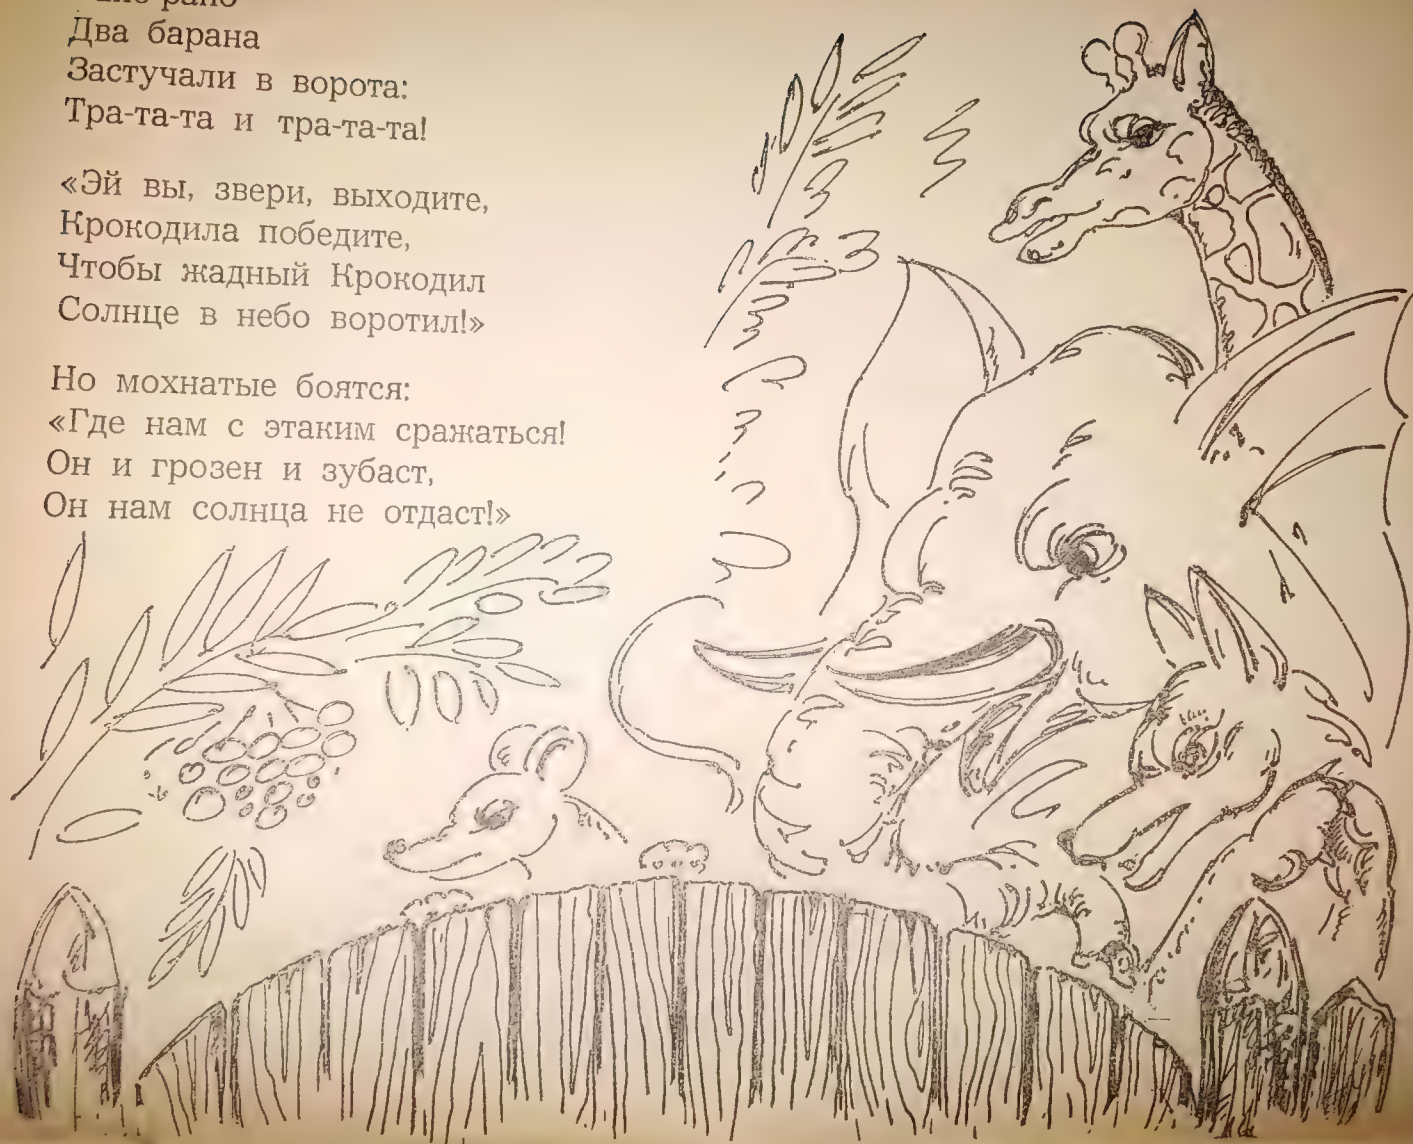 Два барана
Застучали в ворота:
Тра-та-та и тра-та-та!
«Эй вы, звери, выходите,
Крокодила победите,
Чтобы жадный Крокодил
Солнце в небо воротил!»
Но мохнатые боятся:
«Где нам с этаким сражаться!
Он и грозен и зубаст,
Он нам солнца не отдаст!»